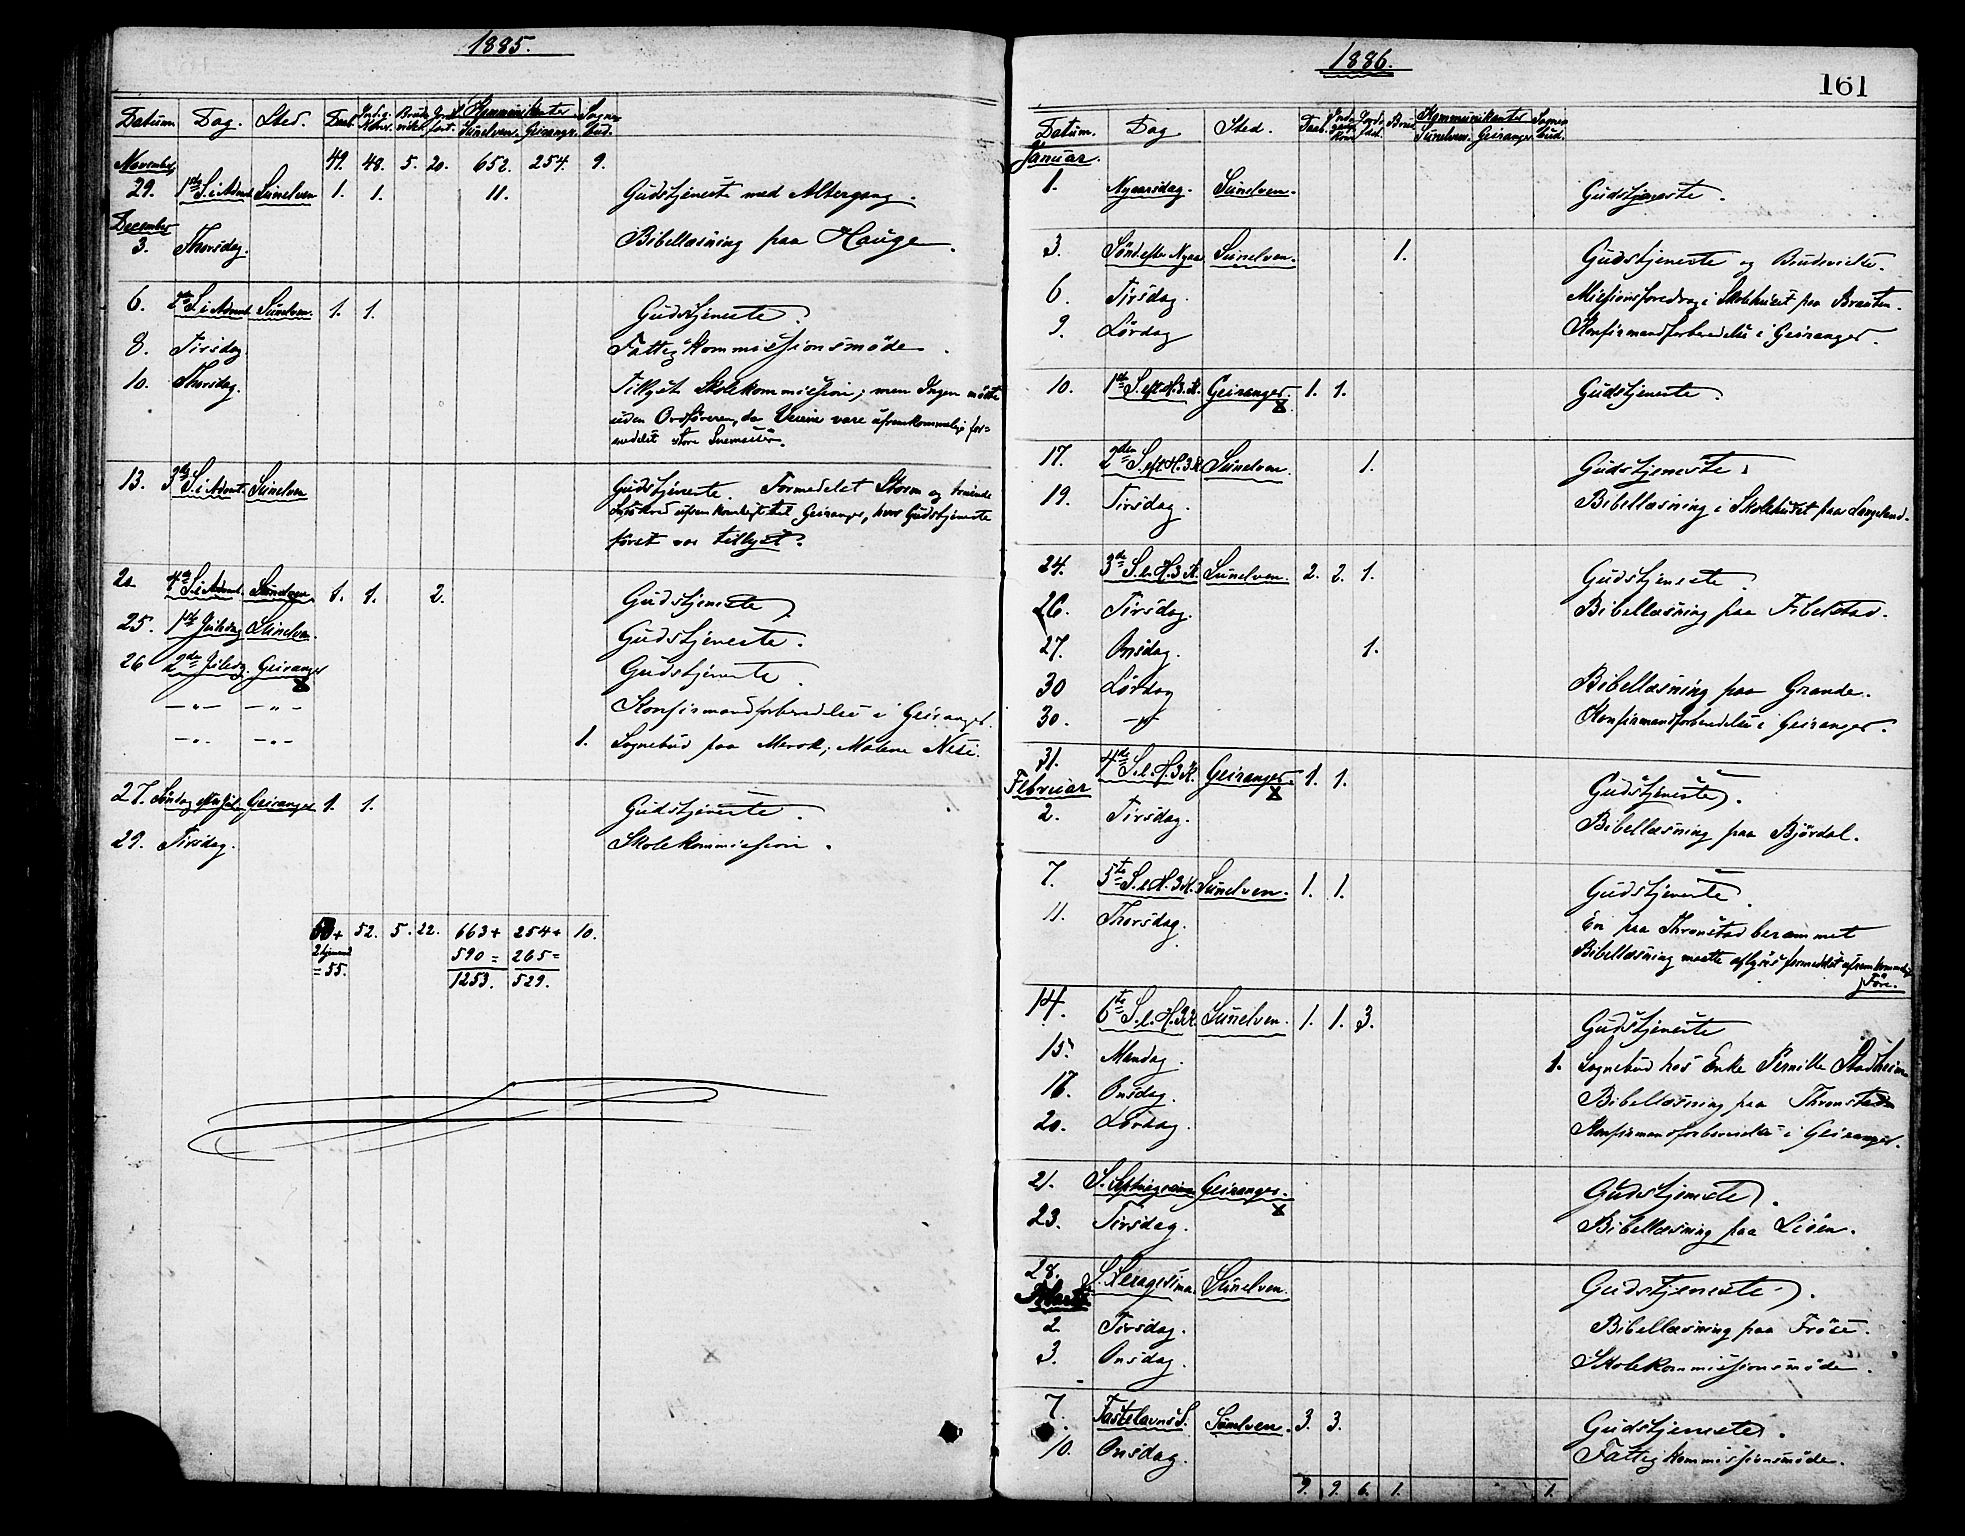 1885.
Datum. Dag. Sted. Daab. Brude- vielse Jord- fæst. Kommunikanter Sunelven. Geiranger. Sogne- bud.
November 49. 48. 5. 20. 652. 254. 9.
29. 1ste S. i Advent Sunelven 1. 1. 11. Gudstjeneste med Altergang.
December
3. Thorsdag. Bibellæsning paa Hauge.
6. 2den S. i Advent Sunelven. 1. 1. Gudstjeneste.
8. Tirsdag Fattigkommissionsmøde.
10. Thorsdag. Tillyst Skolekommission; men Ingen mötte
uden Ordföreren, da Veiene vare ufremkommelige for-
medelst store Sneemasser.
13. 3die S. i Advent. Sunelven Gudstjeneste. Formedelst Storm og
ufremkommeligt til Geiranger, hvor Gudstjeneste
först var tillyst.
20 4de S. i Advent. Sunelven. 1. 1. 2. Gudstjeneste
25. 1ste Juledag Sunelven. Gudstjeneste.
26 2den Juledag. Geiranger X Gudstjeneste.
— " — — " — Konfirmandforberedelse i Geiranger.
— " — — " — 1. Sognebud paa Merok; Malene
27. Søndag efter Jul Geiranger 1. 1. Gudstjeneste.
29. Tirsdag. Skolekommission.
53 + 52. 5. 22. 663 + 254 + 10.
590 = 265 =
= 55. 1253. 529.
1886.
161
Datum. Dag Sted. Daab. Jord- fæst. Brud Kommunikanter Sunelven. Geiranger Sogne- bud.
Januar.
1. Nyaarsdag. Sunelven. Gudstjeneste.
3. Sönd. efter Nyaar Sunelven. 1. Gudstjeneste og Brudevielse.
6. Tirsdag. Missionsforedrag i Skolehuset paa Braaten.
9. Lördag Konfirmandforberedelse i Geiranger.
10. 1ste S. eft H. 3 K. Geiranger. X 1. 1. Gudstjeneste.
17. 2den S. eft H. 3 K Sunelven. 1. Gudstjeneste.
19. Tirsdag. Bibellæsning i Skolehuset paa Langeland.
24. 3die S. e. H. 3 K. Sunelven. 2. 2. 1. Gudstjeneste.
26. Tirsdag. Bibellæsning paa Fibelstad.
27. Onsdag. 1.
30 Lördag Bibellæsning paa Grande.
30. — " — Konfirmandforberedelse i Geiranger.
31. 4de S. e. H. 3 K. Geiranger. X 1. 1. Gudstjeneste.
Februar
2. Tirsdag. Bibellæsning paa Björdal.
7. 5te S. e. H. 3 K. Sunelven. 1. 1. Gudstjeneste.
11. Thorsdag. En paa Thronstad berammet
Bibellæsning maatte aflyses formedelst ufremkommeligt
Före.
14. 6te S. e. H. 3 K. Sunelven. 1. 1. 3. Gudstjeneste
15. Mandag. 1. Sognebud hos Enke Pernille Stadheim
17. Onsdag. Bibellæsning paa Thronstad
20. Lördag. Konfirmandforberedelse i Geiranger.
21. S. Septuagesima Geiranger. X Gudstjeneste.
23. Tirsdag. Bibellæsning paa Liöen.
28. S. Sexagesima. Sunelven. Gudstjeneste.
Marts
2 Tirsdag. Bibellæsning paa Fröse.
3. Onsdag. Skolekommissionsmöde.
7. Fastelavns S. Sunelven. 3. 3. Gudstjeneste.
10. Onsdag. Fattigkommissionsmöde.
9. 9. 6. 1. 1.